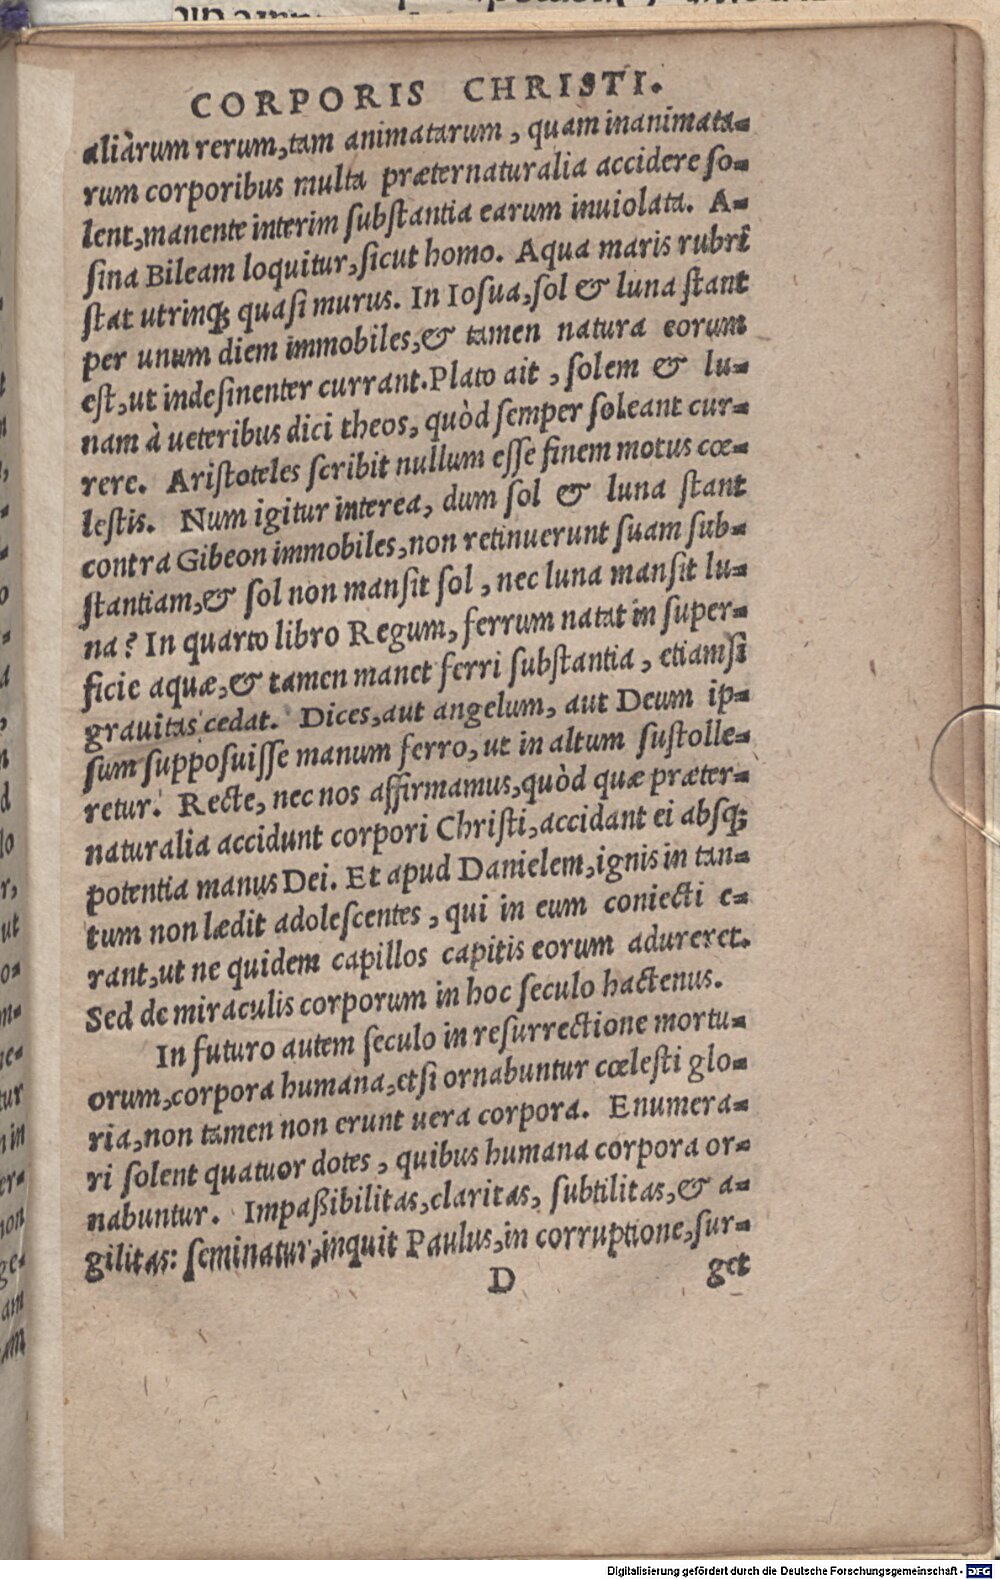 CORPORIS CHRISTI.
aliàrum rerum, tam animatarum, quam inanimata-
rum corporibus multa præternaturalia accidere ſo-
lent, manente interim ſubſtantia earum inuiolata. A-
ſina Bileam loquitur, ſicut homo. Aqua maris rubri
ſtat utrinq; quaſi murus. In Ioſua, ſol & luna ſtant
per unum diem immobiles, & tamen natura eorum
eſt, ut indeſinenter currant. Plato ait, ſolem & lu-
nam à ueteribus dici theos, quòd ſemper ſoleant cur-
rere. Ariſtoteles ſcribit nullum eſſe finem motus cœ-
leſtis. Num igitur interea, dum ſol & luna ſtant
contra Gibeon immobiles, non retinuerunt ſuam ſub-
ſtantiam, & ſol non manſit ſol, nec luna manſit lu-
na? In quarto libro Regum, ferrum natat in ſuper-
ficie aquæ, & tamen manet ferri ſubſtantia, etiamſi
grauitas cedat. Dices, aut angelum, aut Deum ip-
ſum ſuppoſuiſſe manum ferro, ut in altum ſuſtolle-
retur. Recte, nec nos affirmamus, quòd quæ præter-
naturalia accidunt corpori Chriſti, accidant ei abſq;
potentia manus Dei. Et apud Danielem, ignis in tan-
tum non lædit adoleſcentes, qui in eum coniecti e-
rant, ut ne quidem capillos capitis eorum adureret.
Sed de miraculis corporum in hoc ſeculo hactenus.
In futuro autem ſeculo in reſurrectione mortu-
orum, corpora humana, etſi ornabuntur cœleſti glo-
ria, non tamen non erunt uera corpora. Enumera-
ri ſolent quatuor dotes, quibus humana corpora or-
nabuntur. Impaßibilitas, claritas, ſubtilitas, & a-
gilitas: ſeminatur, inquit Paulus, in corruptione, ſur-
D get
Digitalisierung gefördert durch die Deutsche Forschungsgemeinschaft - DFG